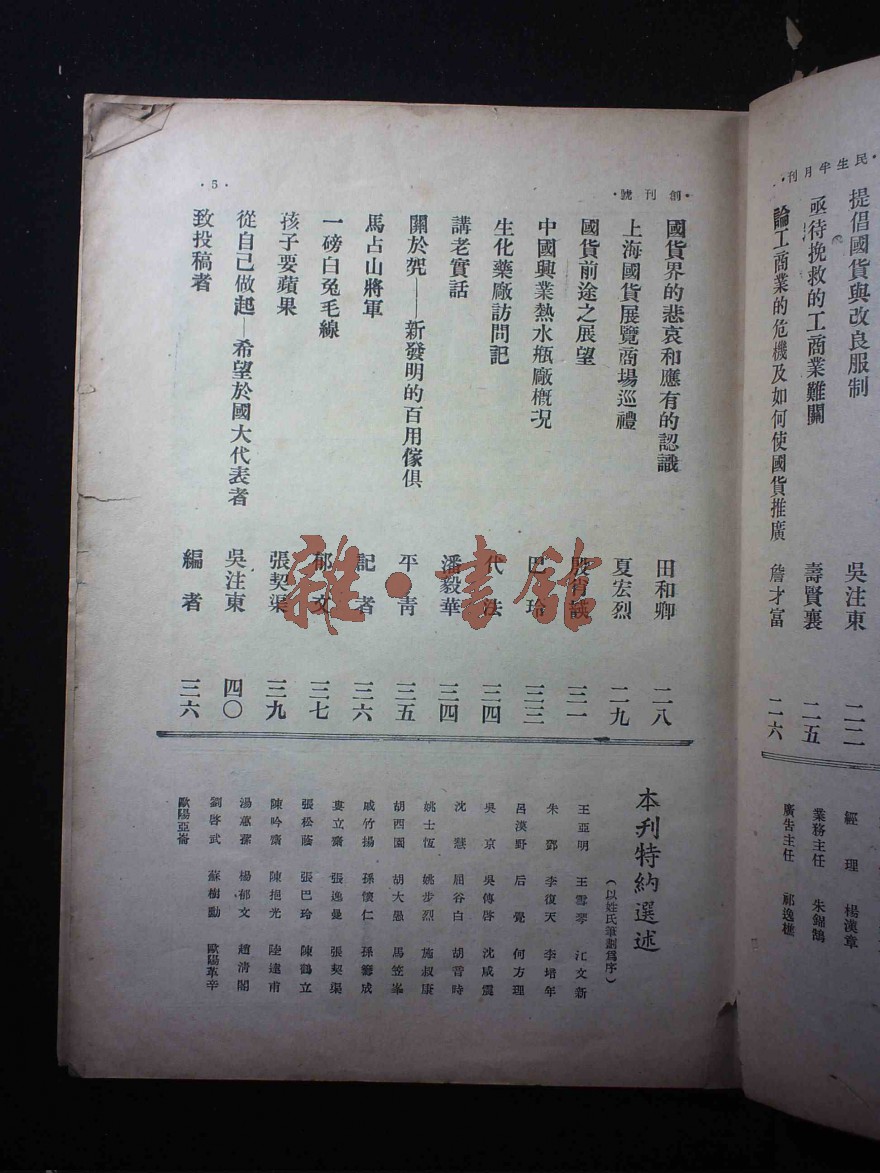 ·民生半月刊·
提倡國貨與改良服制 吳注東 二二
亟待挽救的工商業難關 壽賢襄 二五
論工商業的危機及如何使國貨推廣 詹才富 二六
經理 楊漢章
業務主任 朱錦鵠
廣告主任 祁逸樵
·創刊號·
·5·
國貨界的悲哀和應有的認識 田和卿 二八
上海國貨展覽商場巡禮 夏宏烈 二九
國貨前途之展望 殷肖談 三一
中國興業熱水瓶廠概況 巴玲 三三
生化藥廠訪問記 代法 三四
講老實話 潘毅華 三四
關於㭘——新發明的百用傢俱 平靑 三五
馬占山將軍 記者 三六
一磅白兔毛線 郁文 三七
孩子要蘋果 張契渠 三九
從自己做起—希望於國大代表者 吳注東 四〇
致投稿者 編者 三六
本刊特約選述
(以姓氏筆劃爲序)
王亞明 王雪琴 江文新
朱鄧 李復天 李培年
呂漠野 后覺 何方理
吳京 吳傳啓 沈咸震
沈慧 屈谷白 胡晉時
姚士恆 姚步烈 施叔康
胡西園 胡大愚 馬笠峯
戚竹揚 孫懷仁 孫籌成
婁立齋 張逸曼 張契渠
張松蔭 張巴玲 陳鶴立
陳吟齋 陳挹光 陸遠甫
湯蕙蓀 楊郁文 趙清閣
劉啓武 蘇樹勳 歐陽革辛
歐陽亞崙
雜·書舘